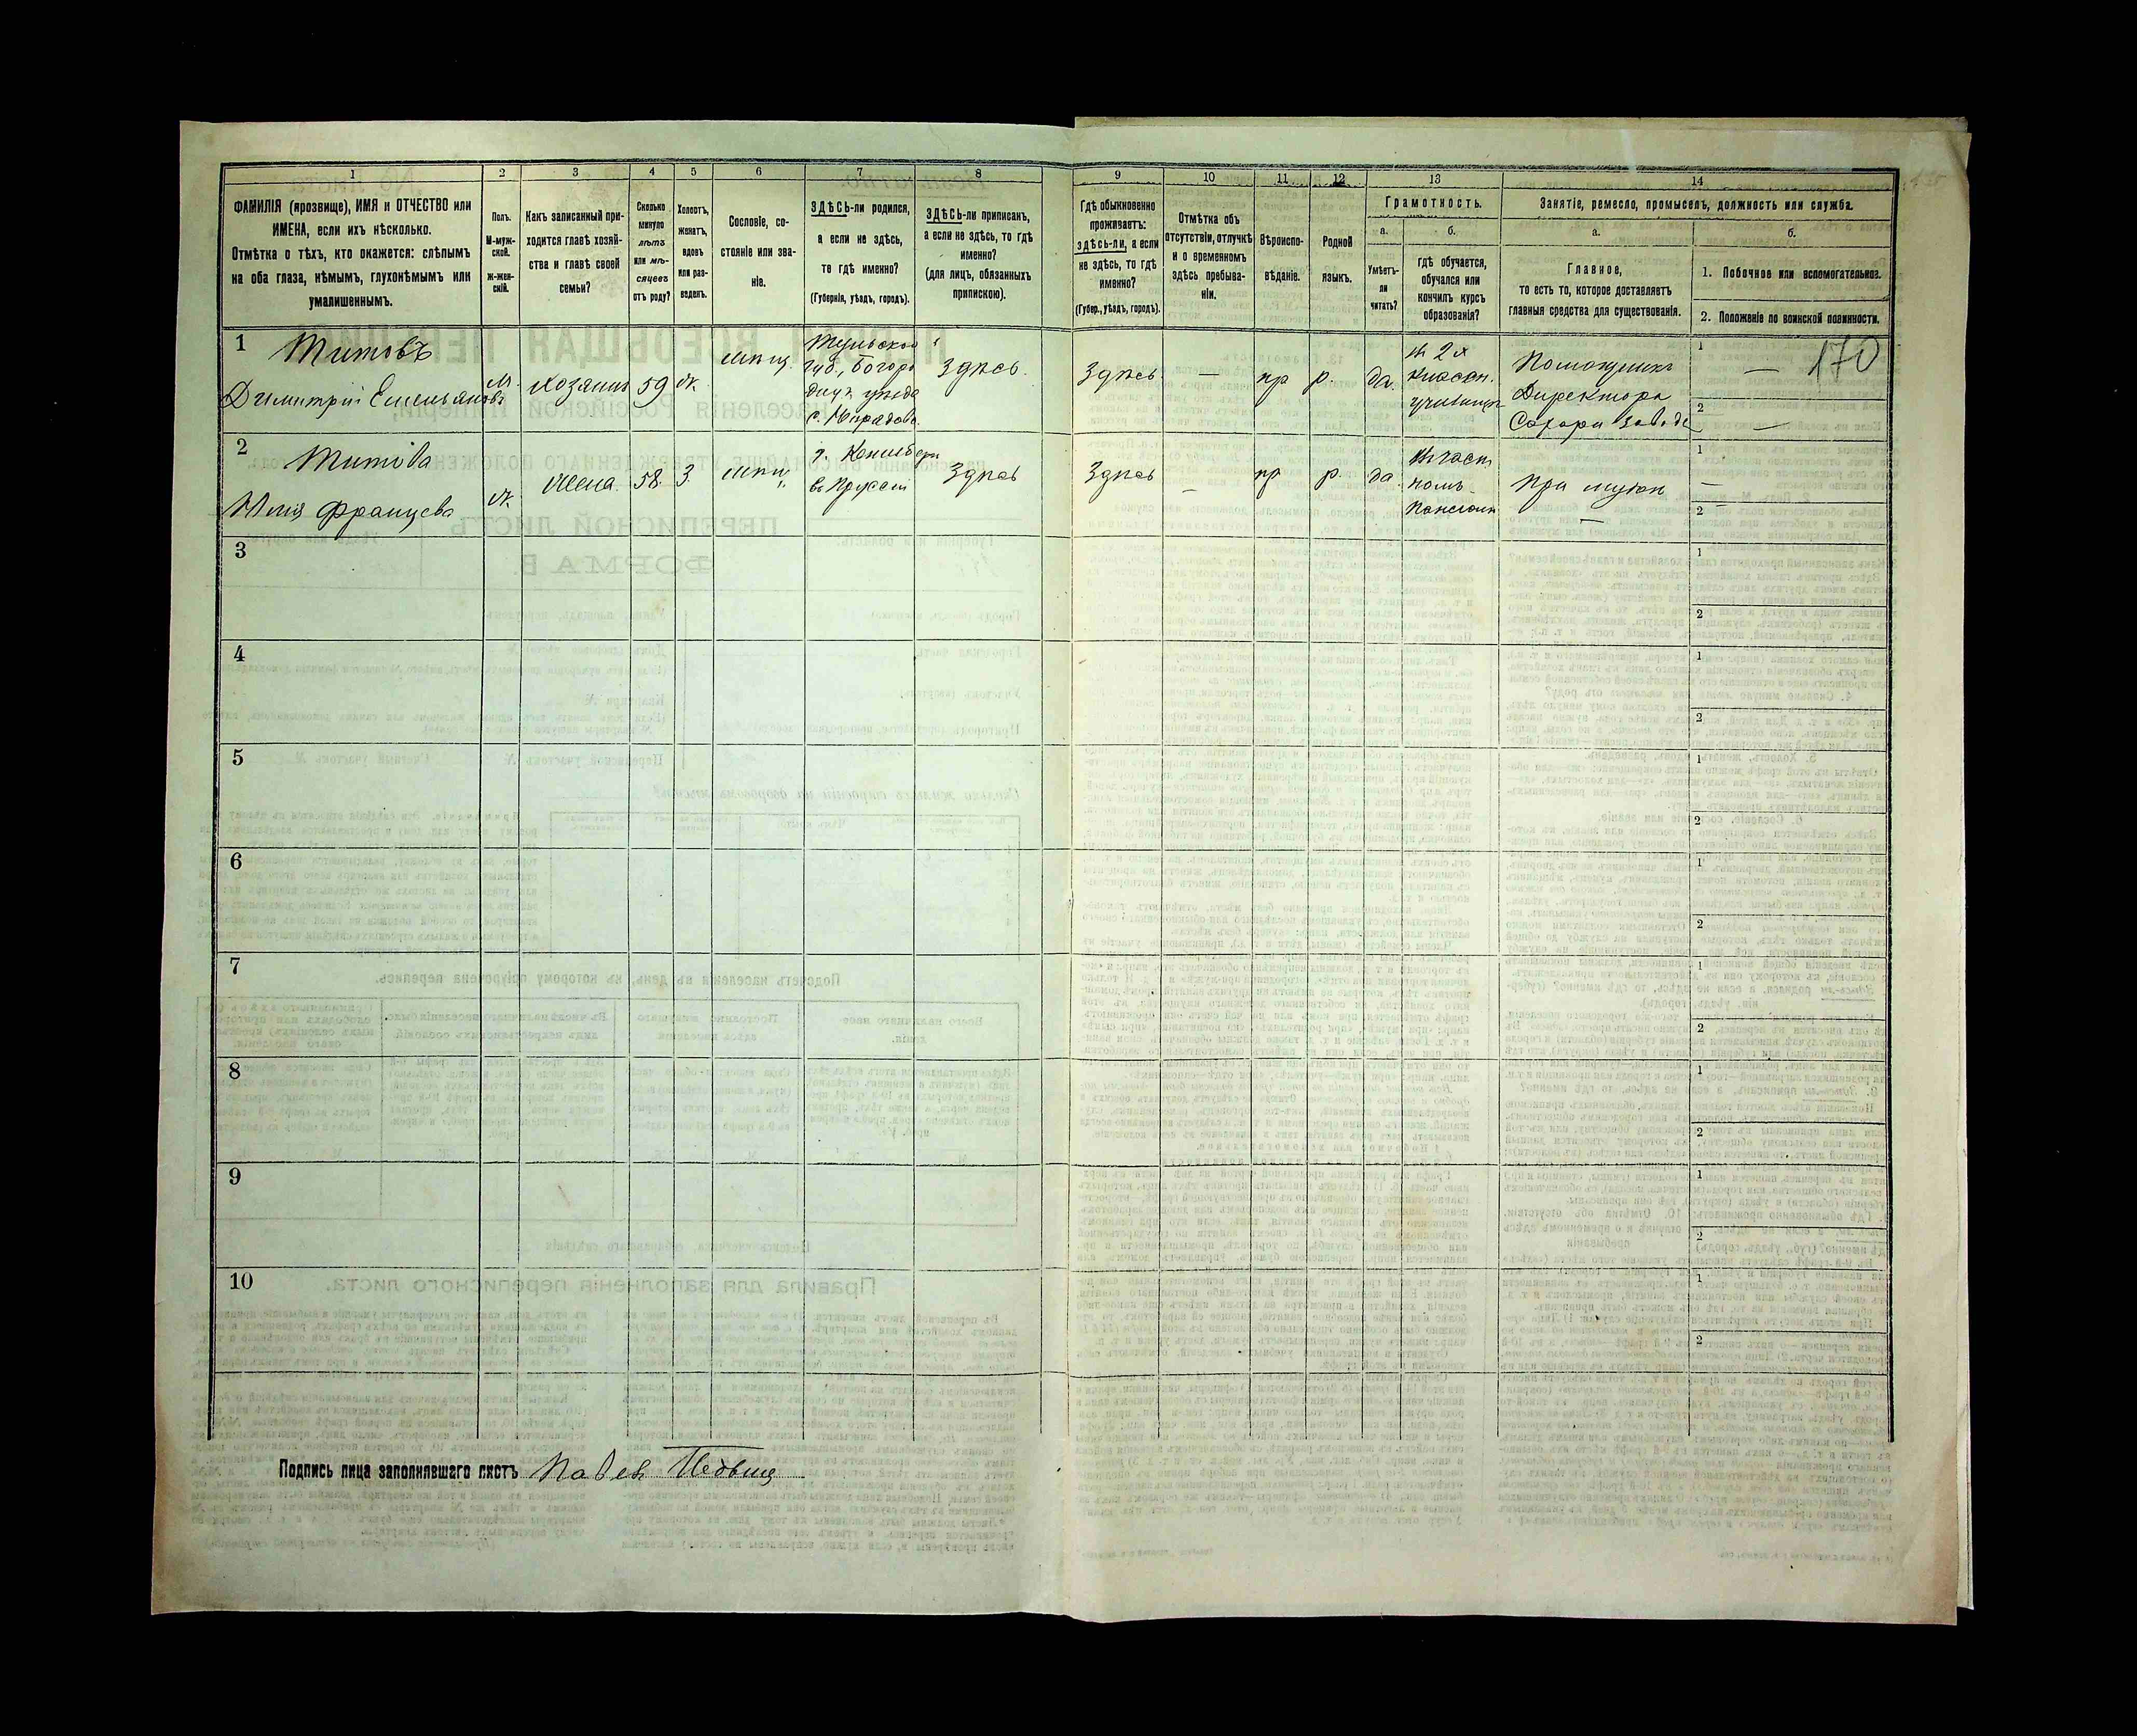 1
2
3
4
5
6
7
8
9
10
11
12
13
14
ФАМИЛІЯ (прозвище), ИМЯ и ОТЧЕСТВО или
ИМЕНА, если ихъ нѣсколько.
Отмѣтка о тѣхъ, кто окажется: слѣпымъ
на оба глаза, нѣмымъ, глухонѣмымъ или
умалишеннымъ.
Полъ.
М-муж-
ской.
Ж-жен-
скій.
Какъ записанный при-
ходится главѣ хозяй-
ства и главѣ своей
семьи?
Сколько
минуло
лѣтъ
или мѣ-
сяцевъ
отъ роду?
Холостъ,
женатъ,
вдовъ
или раз-
веденъ.
Сословіе, со-
стояніе или зва-
ніе.
ЗДѢСЬ-ли родился,
а если не здѣсь,
то гдѣ именно?
(Губернія, уѣздъ, городъ).
ЗДѢСЬ-ли приписанъ,
а если не здѣсь, то гдѣ
именно?
(для лицъ, обязанныхъ
припискою).
Гдѣ обыкновенно
проживаетъ:
здѣсь-ли, а если
не здѣсь, то гдѣ
именно?
(Губер., уѣздъ, городъ).
Отмѣтка объ
отсутствіи, отлучкѣ
и о временномъ
здѣсь пребыва-
ніи.
Вѣроиспо-
вѣданіе.
Родной
языкъ.
Грамотность.
а.
Умѣетъ-
ли
читать?
б.
гдѣ обучается,
обучался или
кончилъ курсъ
образованія?
Занятіе, ремесло, промыселъ, должность или служба.
а.
Главное,
то есть то, которое доставляетъ
главныя средства для существованія.
б.
1. Побочное или вспомогательное.
2. Положеніе по воинской повинности.
1
Титовъ
Димитрій Емельяновъ
м.
Хозяинъ
59
ж.
мѣщ.
Тульской
губ., Богоро
диц. уѣзда
с.
Здѣсь.
Здѣсь
—
пр
р.
да.
въ 2х
классн.
училищѣ
Помощникъ
Директора
Сахарн завода
1
—
170
2
—
2
Титова
Юлія Францева
ж.
Жена.
58.
3.
мѣщ.
г. Кенигсбергъ
въ Пруссіи
Здѣсь
Здѣсь
—
пр
р.
да.
въ част
номъ
пансіонѣ
при мужѣ
—
1
—
2
—
3
1
2
4
1
2
5
1
2
6
1
2
7
1
2
8
1
2
9
1
2
10
1
2
Подпись лица заполнявшаго листъ